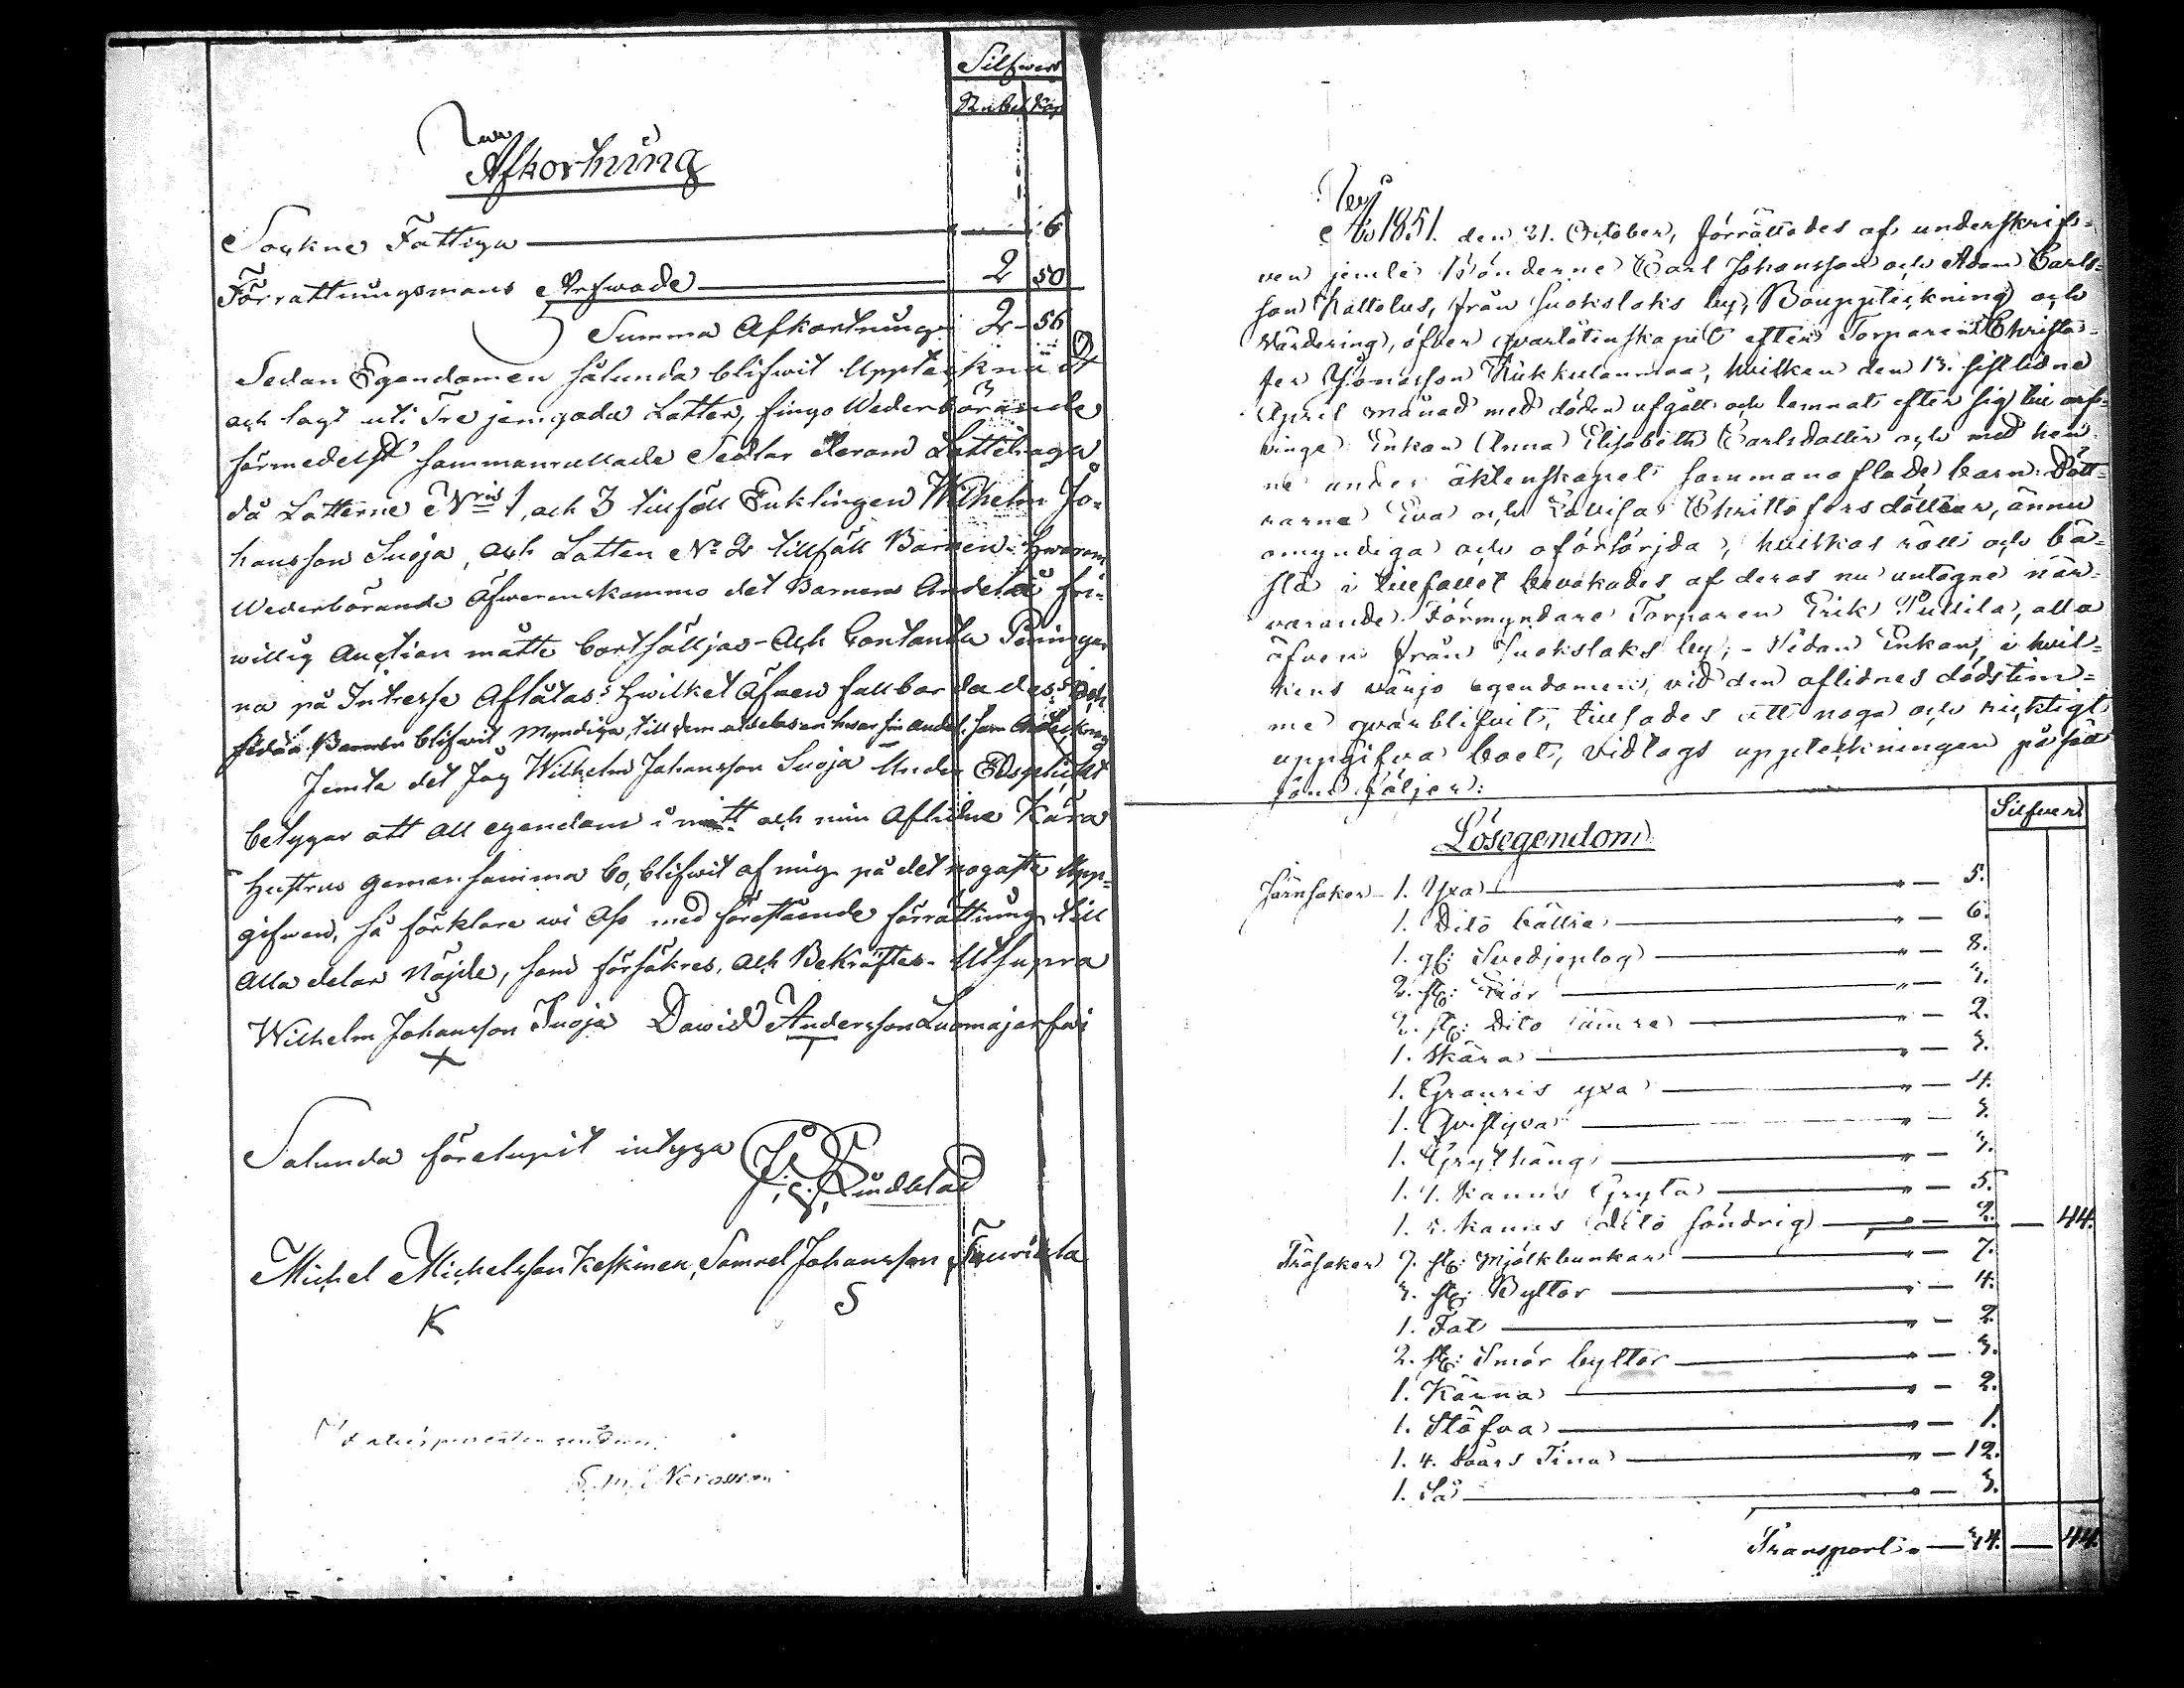 Silfwer
Rubel Kop
Afkortning
Sockne Fattiga 6
Förrattningsmans Arfwode 2 50
Summa Afkortning 2 56
Sedan Egendomen sålunda blifwit Upptecknad
och lagt uti Tre jemgoda Lotter, fingo Wederbörande
förmedelst sammanrullade Sedlar deras Lottdraga
då Lotterne Nris 1, och 3 tillföll Enklingen Wilhelm Jo-
hansson Suoja, och Lotten No 2 tillföll Barnen. Hwarom
Wederbörande öfwerenskommo det Barnens Andelar fri-
willig Auction måtte bortsälljas - Och Contanta Peningar
na på Intresse Aflåtas; Hwilket äfwen fullbordades; och
sedan Barnen blifwit Myndiga, till dem utdelas en hwar sin andel, som
Jemte det Jag Wilhelm Johansson Suoja Under Edsplicht
betygar att all egendom i mitt och min Aflidna Kära
Hustrus gemensamma bo, blifwit af mig på det nogaste Upp-
gifwen, så förklare wi Oss med förestående förrättning till
Alla delar Nöjde, som försäkres, och Bekräftes. Utsupra
Wilhelm Johansson Suoja Dawid Andersson Luomajarfwi
Sålunda förelupit intyga
Lindblad
Michel Michelsson Keskinen, Samuel Johansson Tauriala
K S
År 1851. den 21. October, förrättades af underskrif-
ven jemte Bönderne Carl Johansson och Adam Carls-
son Kallolus, från Suokslaks by, Bouppteckning och
Värdering, öfver qvarlåtenskapet efter Torparen Christo-
fer Jönasson Kukkulanmaa, hvilken den 13. sistledne
April månad med döden afgått och lemnat efter sig till arf-
vinge Enkan Anna Elisabeth Carlsdotter och med hen-
ne under äktenskapet sammanaflade barn: Dött-
rarna Eva och Lovisa Christofersdöttrar, ännu
omyndiga och oförsörjda, hvilkas rätt och bä-
sta i tillfället bevakades af deras nu antagne när-
varande Förmyndare Torparen Erik Pullila, alla
äfven från Suokslaks by; - Sedan Enkan, i hvil-
kens värjo egendomen, vid den aflidnes dödstim-
me qvarblifvit, tillsades att noga och ricktigt
uppgifva boet, vidtogs uppteckningen på sätt
som följer:
Lösegendom Silfver
Järnsaker 1. Yxa 5.
1. Dito bättre 6.
1. gl: Svedjeplog 8.
2. st: Liar 3.
2. st: Dito sämre 2.
1. Skära 3.
1. Granris yxa 4.
1. Qvistyxa 3.
1. Grythäng 3.
1. 1. kanns Gryta 5.
1. 5. kanns dito söndrig 2. 44.
Träsaker 7. st: Mjölkbunkar 7.
3. st: Byttor 4.
1. Fat 2.
2. st: Smör byttor 3.
1. Kärna 2.
1. Stäfva 1.
1. 4. såars Tina 12.
1. Så 3.
Transport 34. 44.